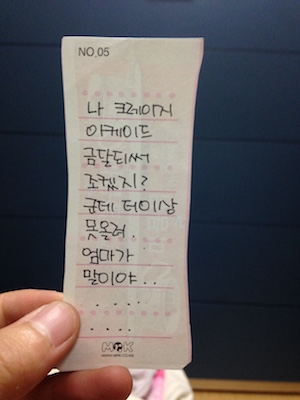 NO.05
나 크레이지
아케이드
금달티써
조켔지?
군데 더이상
못올려.
엄마가
말이야..
....
....